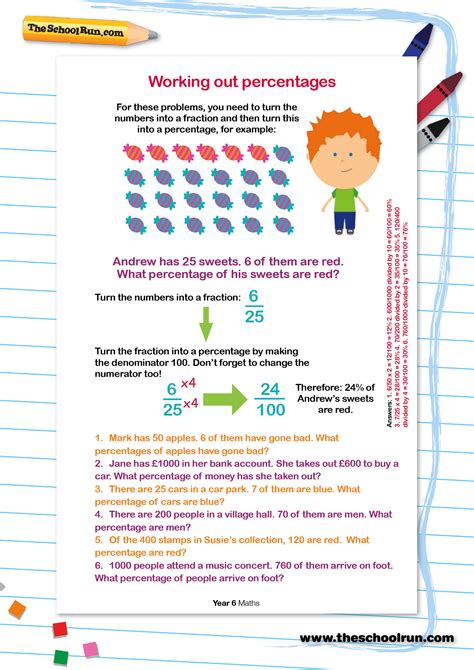 TheSchoolRun.com
Working out percentages
For these problems, you need to turn the
numbers into a fraction and then turn this
into a percentage, for example:
Andrew has 25 sweets. 6 of them are red.
What percentage of his sweets are red?
Turn the numbers into a fraction: 6/25
Turn the fraction into a percentage by making
the denominator 100. Don't forget to change the
numerator too!
6/25 x4 x4 24/100
Therefore: 24% of
Andrew's sweets
are red.
1. Mark has 50 apples. 6 of them have gone bad. What
percentages of apples have gone bad?
2. Jane has £1000 in her bank account. She takes out £600 to buy a
car. What percentage of money has she taken out?
3. There are 25 cars in a car park. 7 of them are blue. What
percentage of cars are blue?
4. There are 200 people in a village hall. 70 of them are men. What
percentage are men?
5. Of the 400 stamps in Susie's collection, 120 are red. What
percentage are red?
6. 1000 people attend a music concert. 760 of them arrive on foot.
What percentage of people arrive on foot?
Answers: 1. 6/50 x 2 = 12/100 = 12% 2. 600/1000 divided by 10 = 60/100 = 60%
3. 7/25 x 4 = 28/100 = 28% 4. 70/200 divided by 2 = 35/100 = 35% 5. 120/400
divided by 4 = 30/100 = 30% 6. 760/1000 divided by 10 = 76/100 = 76%
Year 6 Maths
www.theschoolrun.com